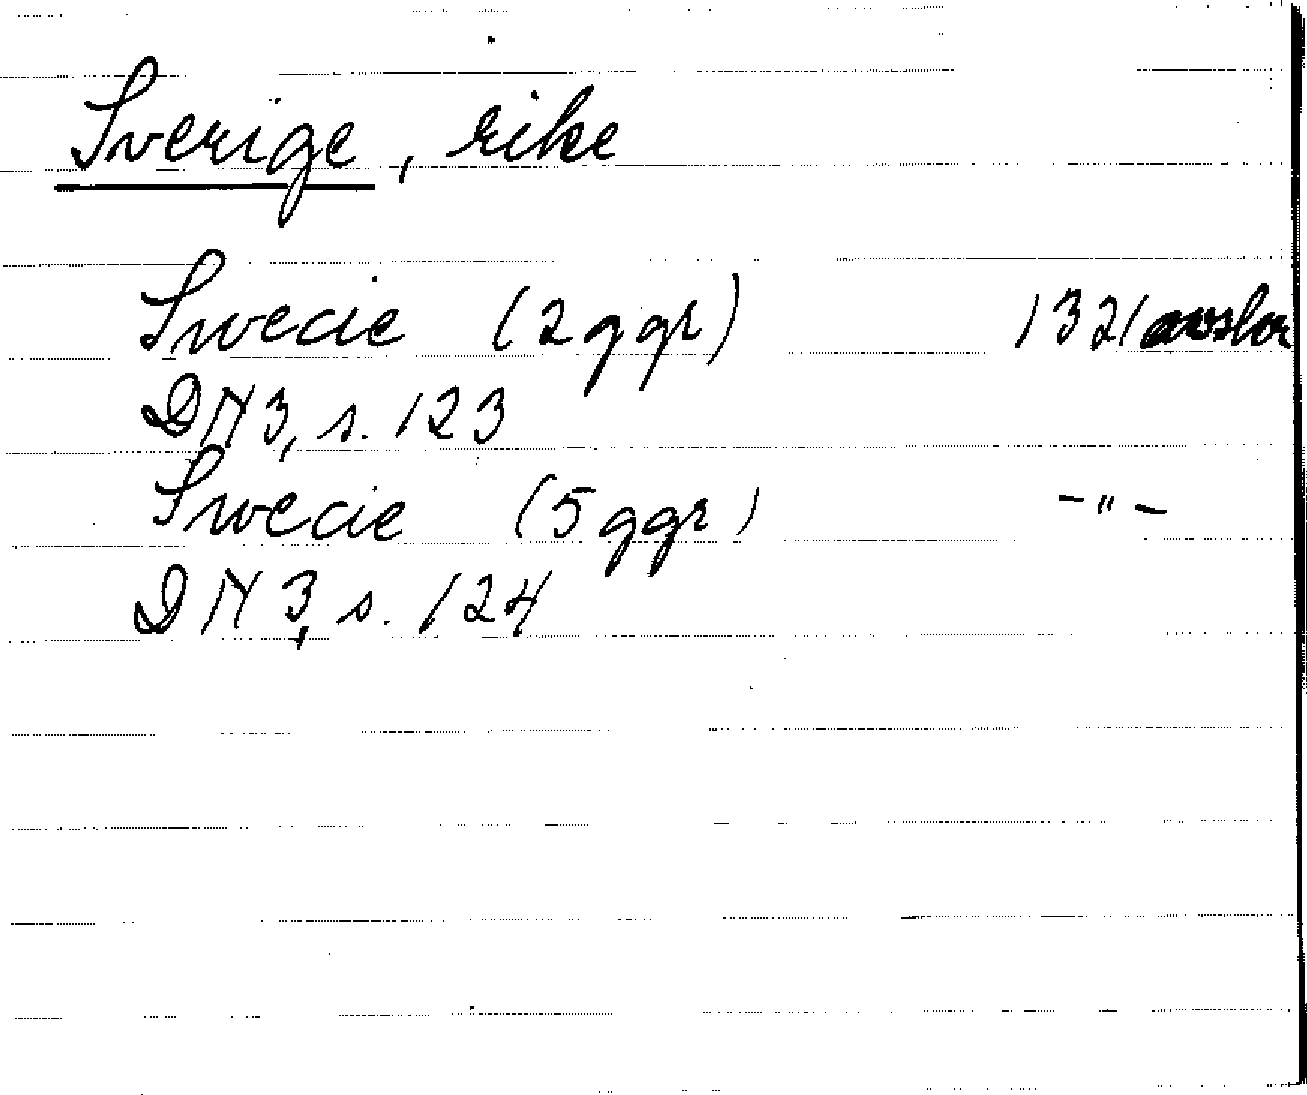 Sverige, rike
Swecie (2 ggr) 1321 avskr
DN 3, s. 123
Swecie (5 ggr) -"-
DN 3, s. 124